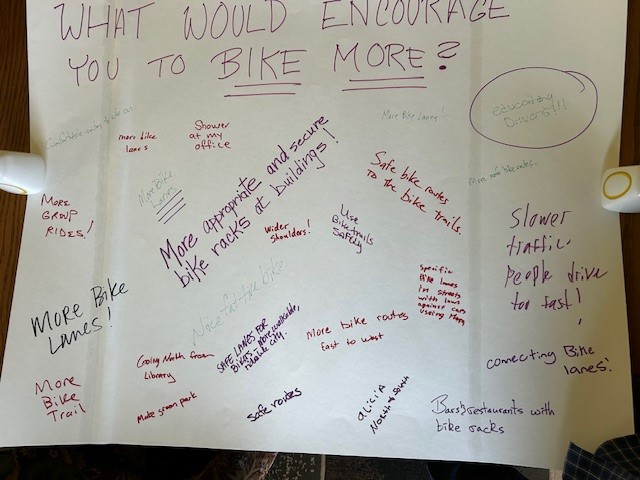 WHAT WOULD ENCOURAGE
YOU TO BIKE MORE?
More Bike Lanes!
educating
Drivers!!!
more bike
lanes
Shower
at my
office
More appropriate and secure
bike racks at buildings!
Safe bike routes
to the bike trails.
More safe bike routes.
More Bike
Lanes
MORE
GROUP
RIDES!
Wider
Shoulders!
Use
Bike trails
Safely
Slower
traffic.
People drive
too fast!
Specific
Bike lanes
in streets
with laws
against cars
using them
More Bike
Lanes!
bike
SAFE LANES FOR
BIKES. More walkable,
city.
More bike routes
East to west
Going North from
Library
connecting Bike
lanes!
More
Bike
Trail
Make green park
Safe routes
ALICIA
North & South
Bars & restaurants with
bike racks